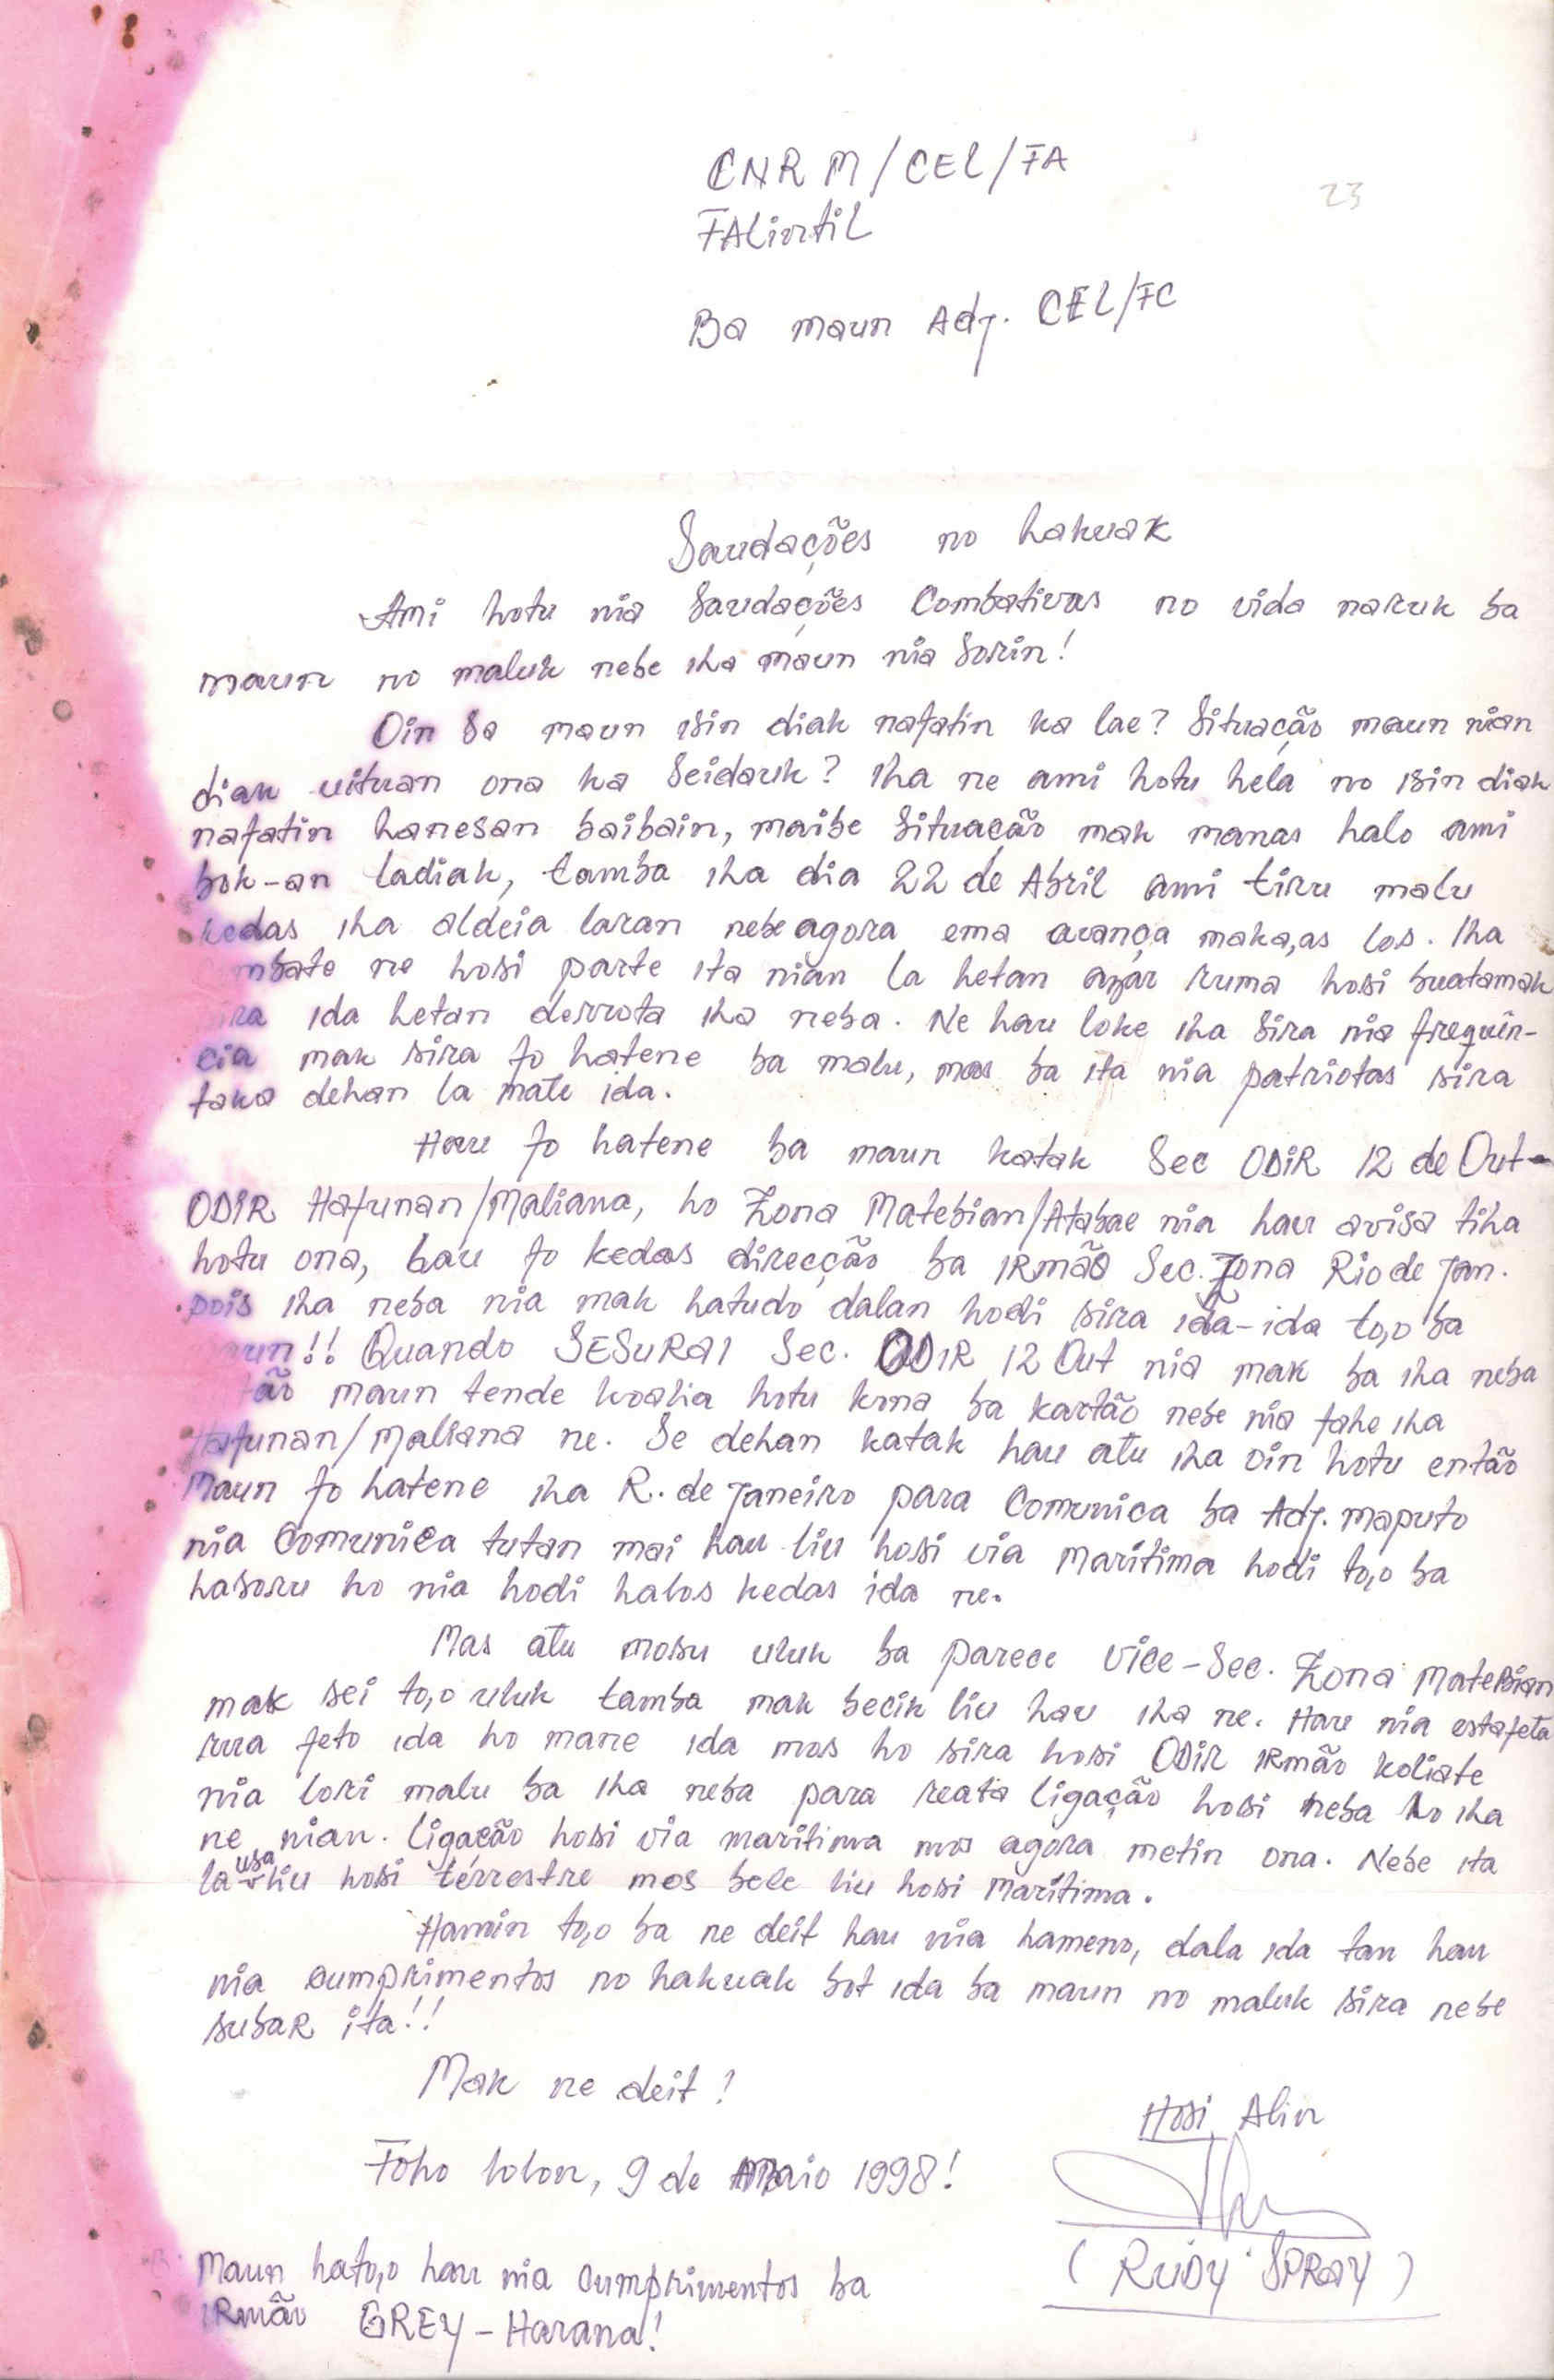 CNRM/CEL/FA
23
FALintil
Ba maun Adj. CEL/FC
Saudações no hakuak
Ami hotu nia Saudações Combativas no vida naruk ba
maun no maluk nebe iha maun nia sorin!
Oin sa maun isin diak nafatin ka lae? Situação maun nian
diak uituan ona ka seidauk? Iha ne ami hotu hela no isin diak
nafatin hanesan baibain, maibe situação mak manas halo ami
bok-an ladiak, tamba iha dia 22 de Abril ami tiru malu
kedas iha aldeia laran nebe agora ema avança maka,as los. Iha
mbate ne hosi parte ita nian la hetan azar ruma hosi buatamak
sira ida hetan derrota iha neba. Ne hau loke iha sira nia frequên-
cia mak sira fo hatene ba malu, mas ba ita nia patriotas sira
faka dehan la mate ida.
Hau fo hatene ba maun katak Sec ODIR 12 de Out-
ODIR Hafunan/Maliana, ho Zona Matebian/Atabae nia hau avisa tiha
hotu ona, hau fo kedas direcção ba IRmão Sec. Zona Rio de Jan.
pois iha neba nia mak hatudo dalan hodi sira ida-ida to,o ba
aun!! Quando SESURAI Sec. ODIR 12 Out nia mak ba iha neba
tão maun tende koalia hotu kona ba kartão nebe nia fahe iha
Hafunan/Maliana ne. Se dehan katak hau atu iha oin hotu então
Maun fo hatene iha R. de Janeiro para Comunica ba Adj. Maputo
nia Comunica tutan mai hau liu hosi via Marítima hodi to,o ba
hasoru ho nia hodi halos kedas ida ne.
Mas atu mosu uluk ba parece Vice-Sec. Zona Matebian
mak sei to,o uluk tamba mak becik liu hau iha ne. Hau nia estafeta
rua feto ida ho mane ida mos ho sira hosi ODIR IRmão Koliate
nia lori malu ba iha neba para reata ligação hosi neba ho iha
ne nian. Ligação hosi via marítima mos agora metin ona. Nebe ita
la usa liu hosi térrestre mos bele liu hosi Marítima.
Hamin to,o ba ne deit hau nia hameno, dala ida tan hau
nia cumprimentos no hakuak bot ida ba maun no maluk sira nebe
subar ita!!
Mak ne deit!
Hosi Alin
Foho lolon, 9 de Maio 1998!
(RUDY SPRAY)
Maun hato,o hau nia cumprimentos ba
IRmão GREY-Harana!